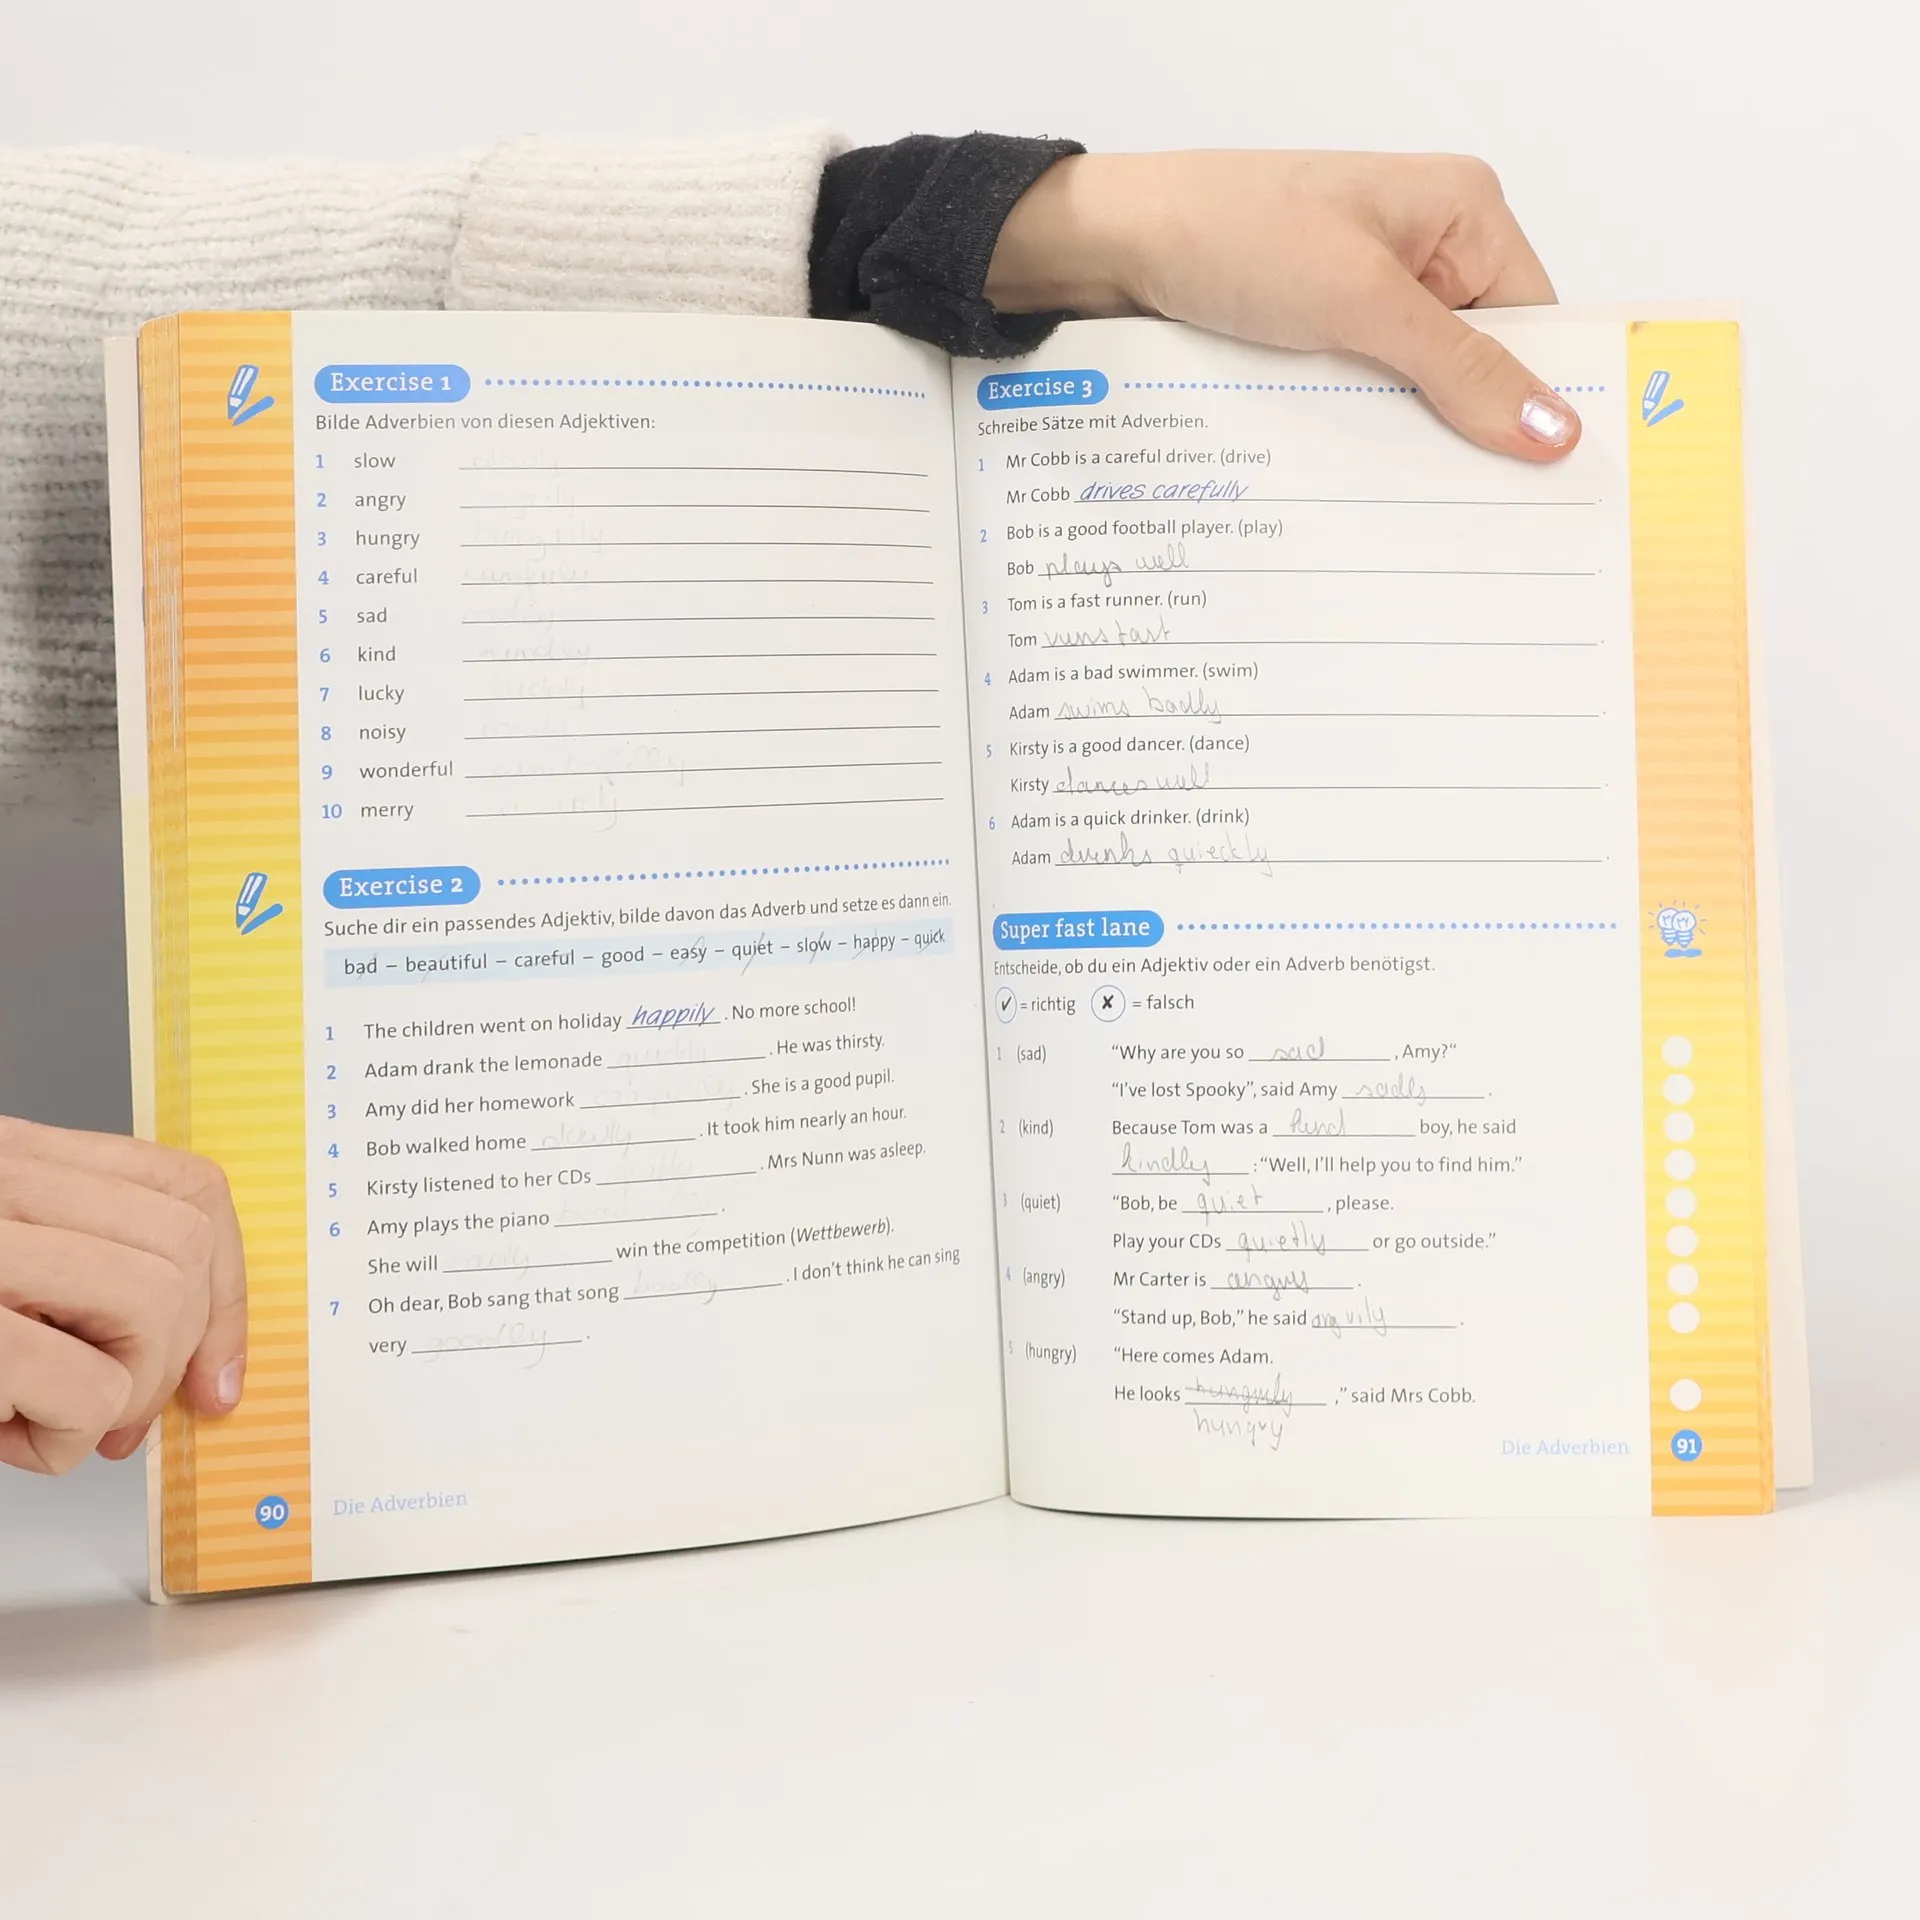 Exercise 1
Bilde Adverbien von diesen Adjektiven:
1 slow
2 angry
3 hungry
4 careful
5 sad
6 kind
7 lucky
8 noisy
9 wonderful
10 merry
Exercise 2
Suche dir ein passendes Adjektiv, bilde davon das Adverb und setze es dann ein.
bad – beautiful – careful – good – easy – quiet – slow – happy – quick
1 The children went on holiday happily. No more school!
2 Adam drank the lemonade quickly. He was thirsty.
3 Amy did her homework . She is a good pupil.
4 Bob walked home slowly. It took him nearly an hour.
5 Kirsty listened to her CDs . Mrs Nunn was asleep.
6 Amy plays the piano .
She will win the competition (Wettbewerb).
7 Oh dear, Bob sang that song badly. I don't think he can sing
very goodly.
90 Die Adverbien
Exercise 3
Schreibe Sätze mit Adverbien.
1 Mr Cobb is a careful driver. (drive)
Mr Cobb drives carefully.
2 Bob is a good football player. (play)
Bob plays well.
3 Tom is a fast runner. (run)
Tom runs fast.
4 Adam is a bad swimmer. (swim)
Adam swims badly.
5 Kirsty is a good dancer. (dance)
Kirsty dances well.
6 Adam is a quick drinker. (drink)
Adam drinks quieckly.
Super fast lane
Entscheide, ob du ein Adjektiv oder ein Adverb benötigst.
✓ = richtig ✗ = falsch
1 (sad) "Why are you so sad, Amy?"
"I've lost Spooky", said Amy sadly.
2 (kind) Because Tom was a kind boy, he said
kindly: "Well, I'll help you to find him."
3 (quiet) "Bob, be quiet, please.
Play your CDs quietly or go outside."
4 (angry) Mr Carter is angry.
"Stand up, Bob," he said angrily.
5 (hungry) "Here comes Adam.
He looks ," said Mrs Cobb.
hungry
Die Adverbien 91